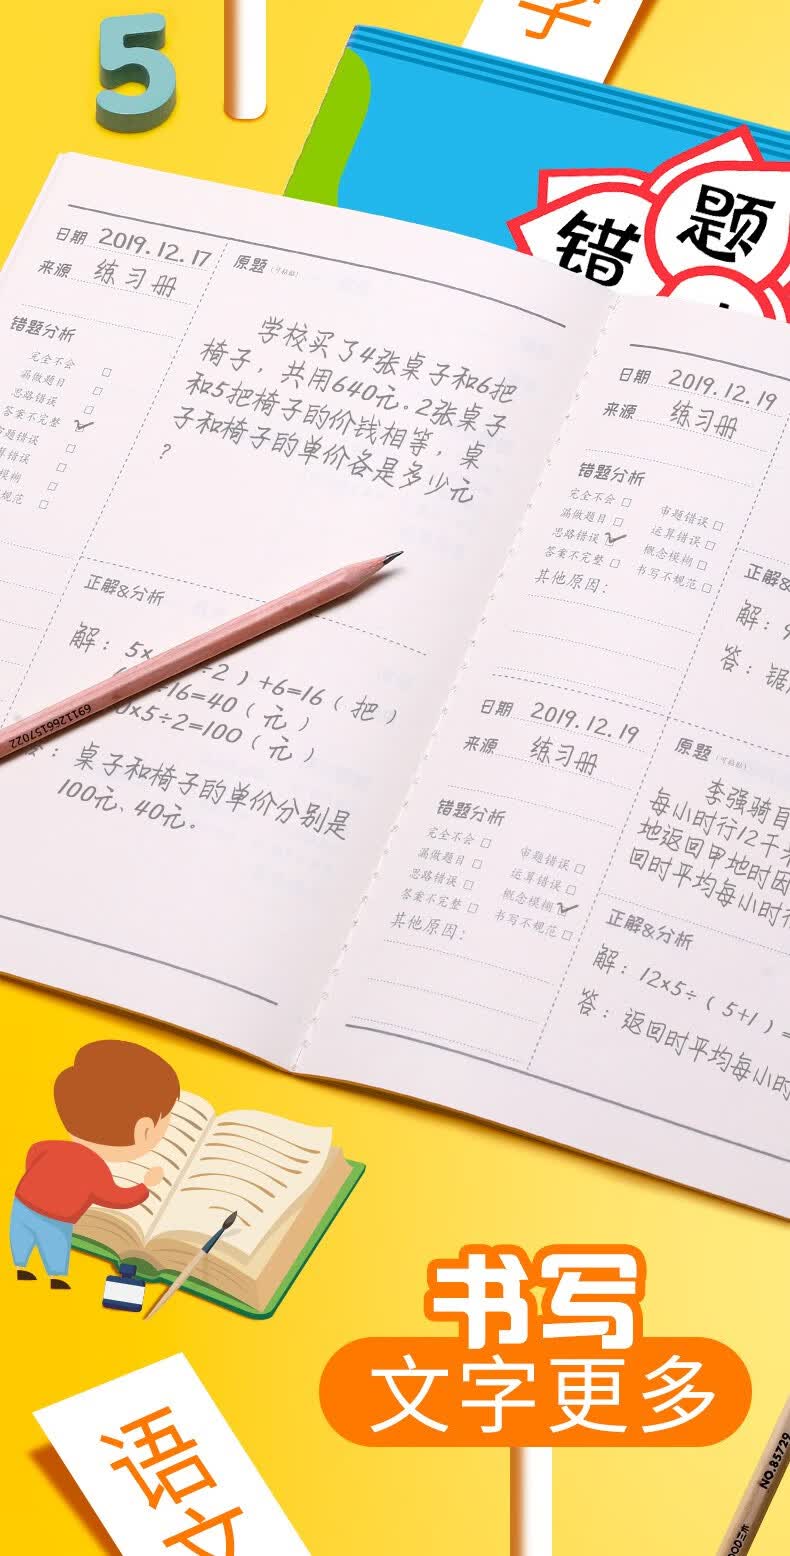 5
字
错
题
日期 2019.12.17
来源 练习册
错题分析
完全不会
漏做题目
思路错误
答案不完整
题错误
算错误
模糊
规范
原题（可粘贴）
学校买了4张桌子和6把
椅子，共用640元。2张桌子
和5把椅子的价钱相等，桌
子和椅子的单价各是多少元
？
正解&分析
解：5×
÷2）+6=16（把）
÷16=40（元）
0×5÷2=100（元）
：桌子和椅子的单价分别是
100元、40元。
6911266157022
日期 2019.12.19
来源 练习册
错题分析
完全不会 审题错误
漏做题目 运算错误
思路错误 概念模糊
答案不完整 书写不规范
其他原因：
正解&
解：9
答：锯
日期 2019.12.19
来源 练习册
错题分析
完全不会 审题错误
漏做题目 运算错误
思路错误 概念模糊
答案不完整 书写不规范
其他原因：
原题（可粘贴）
李强骑自
每小时行12千米
地返回甲地时因
回时平均每小时行
正解&分析
解：12×5÷（5+1）=
答：返回时平均每小时
书写
文字更多
语文
NO.85729